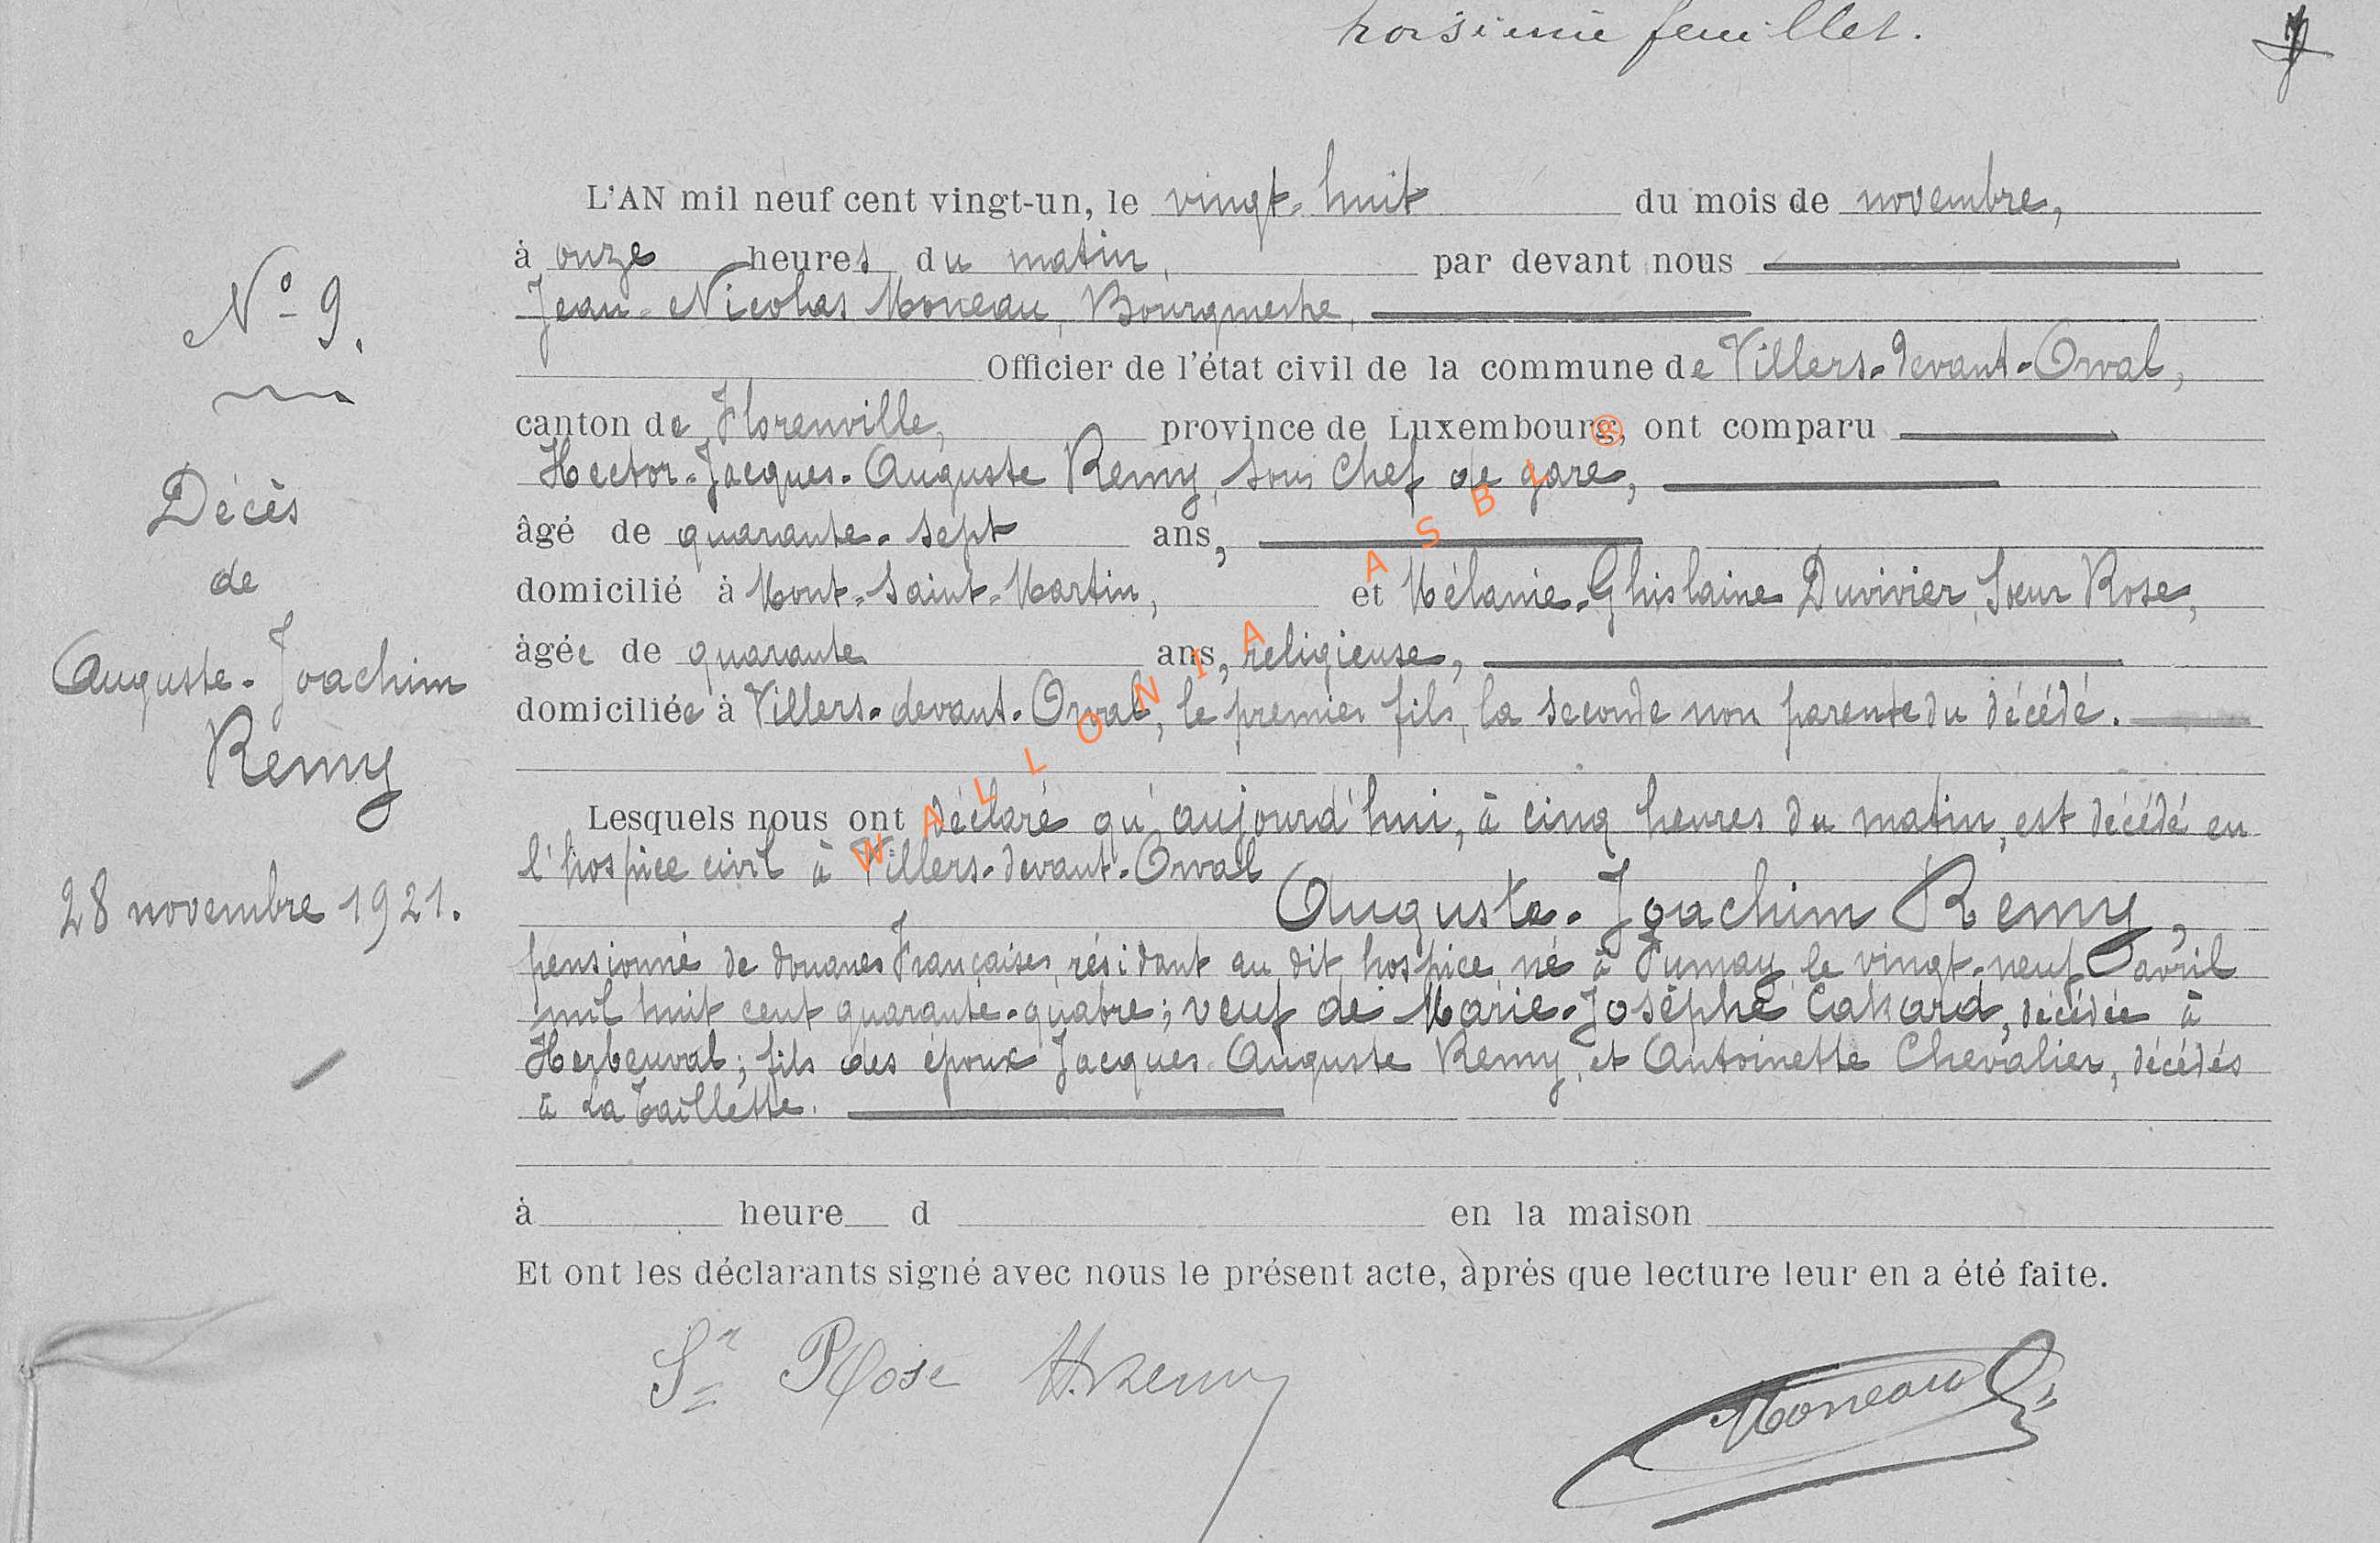 troisième feuillet.
N° 9.
Décès
de
Auguste-Joachim
Remy
28 novembre 1921.
L'AN mil neuf cent vingt-un, le vingt-huit du mois de novembre,
à onze heures du matin, par devant nous
Jean-Nicolas Moneau, Bourgmestre,
Officier de l'état civil de la commune de Villers-devant-Orval,
canton de Florenville, province de Luxembourg, ont comparu
Hector-Jacques-Auguste Remy, sous chef de gare,
âgé de quarante-sept ans,
domicilié à Mont-Saint-Martin, et Mélanie-Ghislaine Duvivier, Sœur Rose,
âgée de quarante ans, religieuse,
domiciliée à Villers-devant-Orval, le premier fils, la seconde non parente du décédé.
Lesquels nous ont déclaré qu'aujourd'hui, à cinq heures du matin, est décédé en
l'hospice civil à Villers-devant-Orval
Auguste-Joachim Remy,
pensionné de douanes Françaises, résidant au dit hospice, né à Fumay, le vingt-neuf avril
mil huit cent quarante-quatre; veuf de Marie-Josèphe, décédée à
Herbeuval; fils des époux Jacques-Auguste Remy, et Antoinette Chevalier, décédés
à La Taillette.
à heure d en la maison
Et ont les déclarants signé avec nous le présent acte, àprès que lecture leur en a été faite.
Sr Rose H. Remy Moneau
WALLONIA ASBL ®